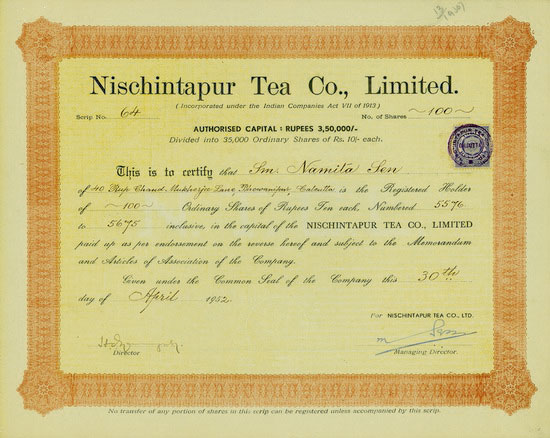 Nischintapur Tea Co., Limited.
(Incorporated under the Indian Companies Act VII of 1913)
Scrip No. 64 No. of Shares ~100~
AUTHORISED CAPITAL : RUPEES 3,50,000/-
Divided into 35,000 Ordinary Shares of Rs. 10/- each.
This is to certify that Sm. Namita Sen
of 40 Rup Chand Mukherjee Lane, Bhowanipur, Calcutta is the Registered Holder
of ~100~ Ordinary Shares of Rupees Ten each, Numbered 5576
to 5675 inclusive, in the capital of the NISCHINTAPUR TEA CO., LIMITED
paid up as per endorsement on the reverse hereof and subject to the Memorandum
and Articles of Association of the Company.
Given under the Common Seal of the Company this 30th
day of April 1952.
For NISCHINTAPUR TEA CO., LTD.
Director Managing Director.
No transfer of any portion of shares in this scrip can be registered unless accompanied by this scrip.